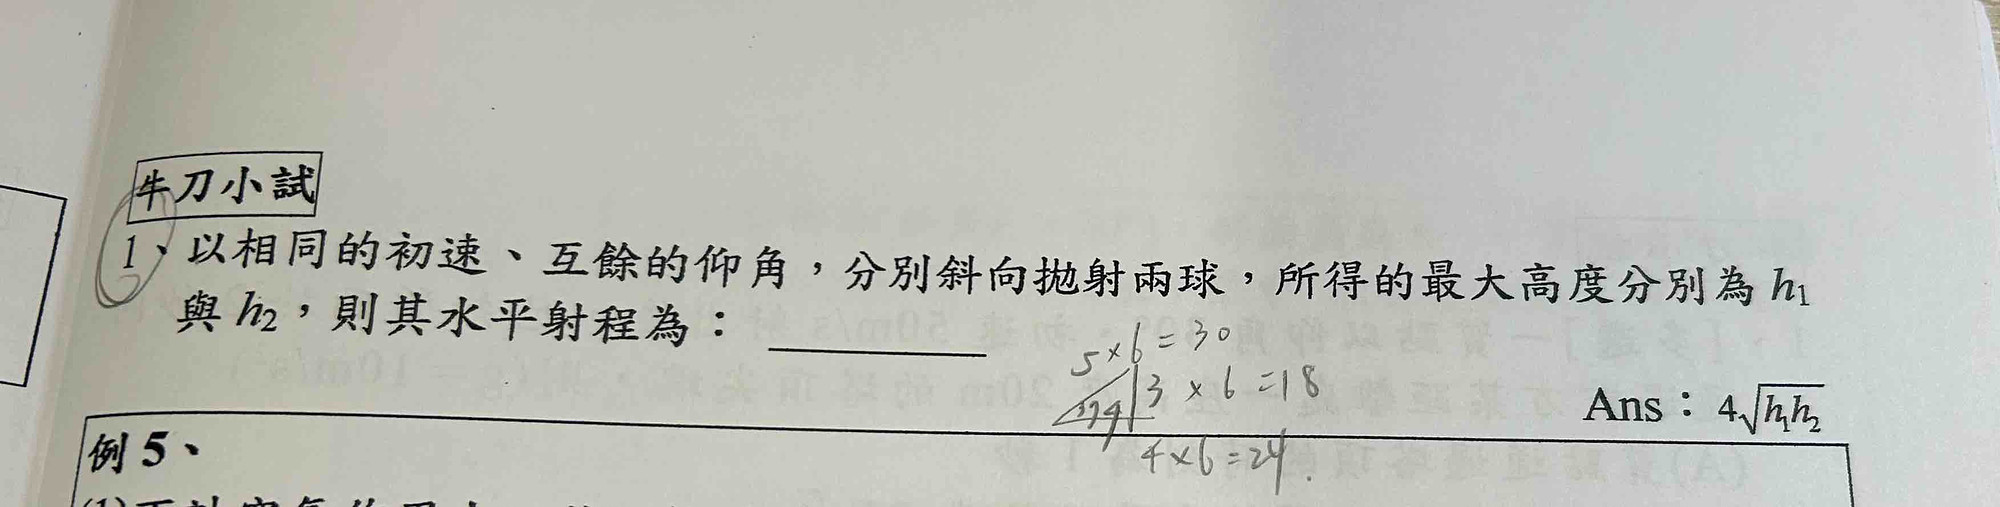 牛刀小試
1、以相同的初速、互餘的仰角，分別斜向拋射兩球，所得的最大高度分別為 h₁
與 h₂，則其水平射程為：
5×6=30
3×6=18
4×6=24.
Ans：4√h₁h₂
例 5、